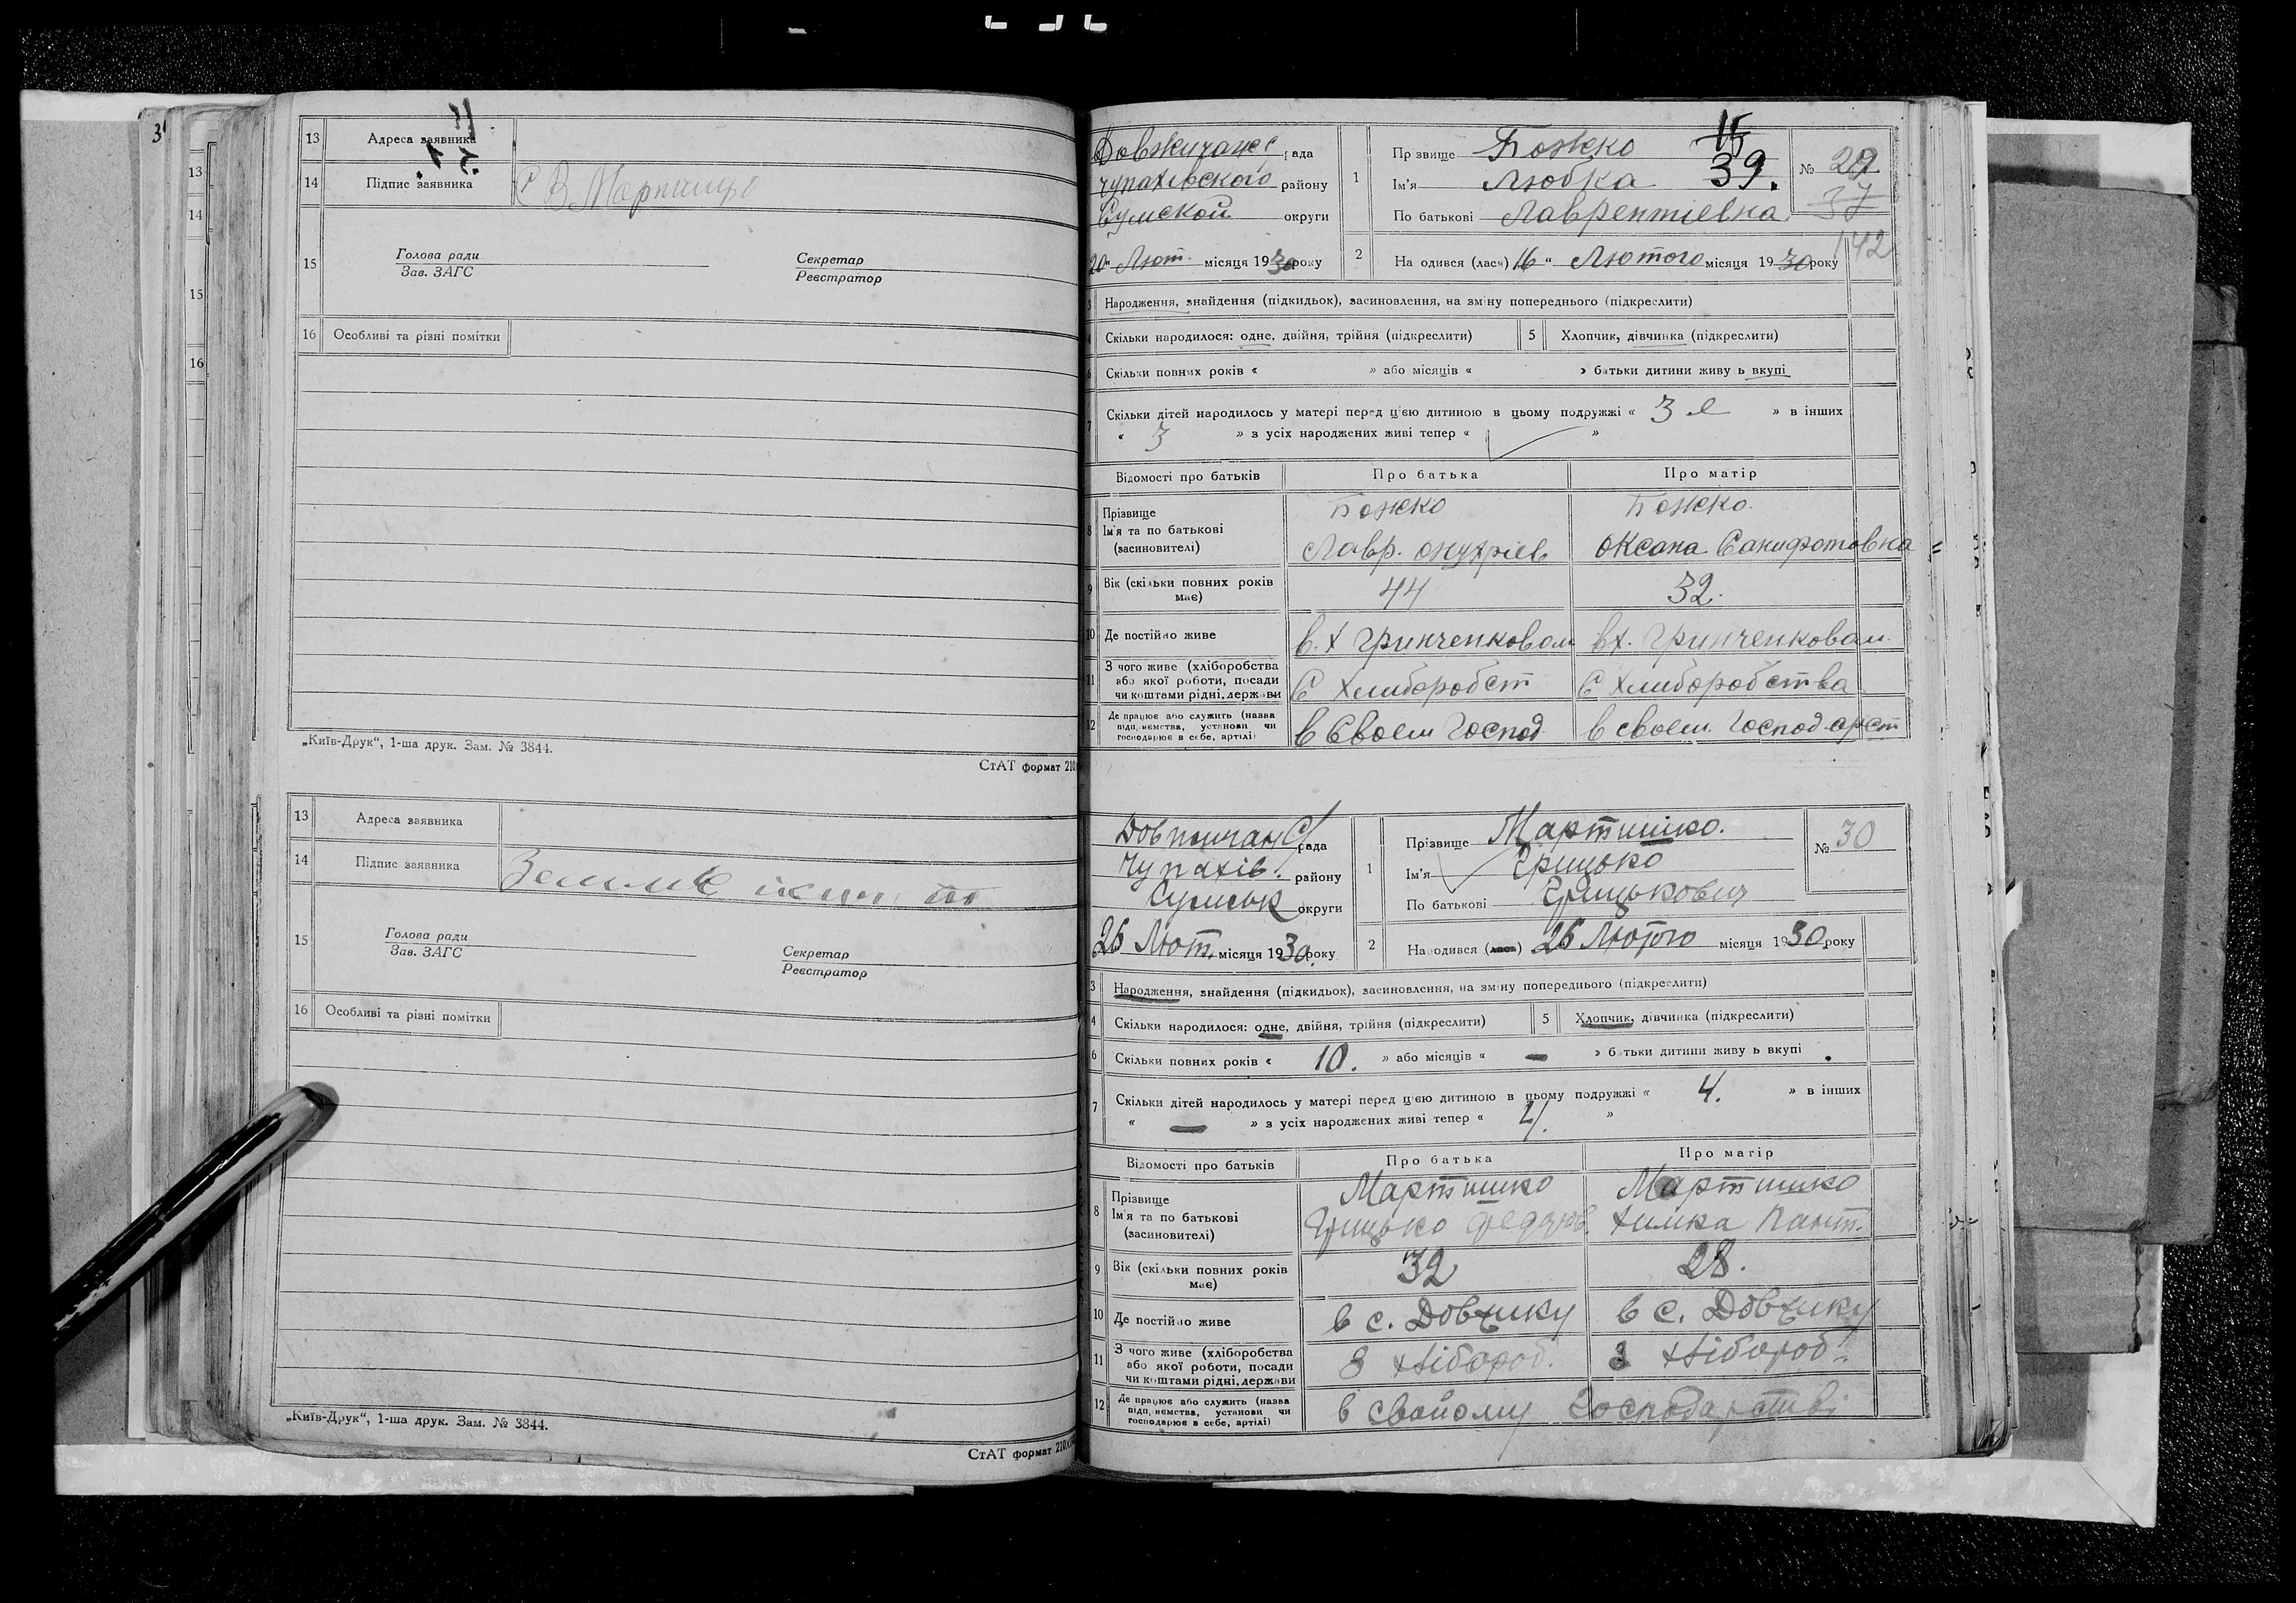 13 Адреса заявника
14 Підпис заявника
15 Голова ради
Зав. ЗАГС
Секретар
Реєстратор
16 Особливі та різні помітки
„Київ-Друк“, 1-ша друк. Зам. № 3844.
СтАТ формат 210
13 Адреса заявника
14 Підпис заявника
15 Голова ради
Зав. ЗАГС
Секретар
Реєстратор
16 Особливі та різні помітки
„Київ-Друк“, 1-ша друк. Зам. № 3844.
СтАТ формат 210
рада
Чупаховского району
Сумской округи
20 Лют. місяця 1930 року
1 Прізвище Божко
39.
Ім'я Любка
По батькові Лаврентіевна
№ 29
37
142
2 На одився (лася) 16 “ Лютого місяця 1930 року
3 Народження, знайдення (підкидьок), засиновлення, на зміну попереднього (підкреслити)
4 Скільки народилося: одне, двійня, трійня (підкреслити) 5 Хлопчик, дівчинка (підкреслити)
6 Скільки повних років « » або місяців « » батьки дитини живу ь вкупі
7 Скільки дітей народилось у матері перед цією дитиною в цьому подружжі « 3 » в інших
« 3 » з усіх народжених живі тепер « »
Відомості про батьків Про батька Про матір
8 Прізвище Божко Божко.
Ім'я та по батькові
(засиновителі) Лавр. Онухріев Оксана
9 Вік (скільки повних років має) 44 32.
10 Де постійно живе в. х Гринченковом в х. Гринченковом
11 З чого живе (хліборобства
або якої роботи, посади
чи коштами рідні, держави С Хлиборобст С Хлиборобства
12 Де працює або служить (назва
підприємства, установи чи
господарює в себе, артілі) в Своем Господ в своем Господарст
рада
Чупахів. району
Сумськ округи
26 Лют. місяця 1930 року
1 Прізвище Мартишко.
Ім'я Грицько
По батькові Грицькович
№ 30
2 Народився (лася) 26 Лютого місяця 1930 року
3 Народження, знайдення (підкидьок), засиновлення, на зміну попереднього (підкреслити)
4 Скільки народилося: одне, двійня, трійня (підкреслити) 5 Хлопчик, дівчинка (підкреслити)
6 Скільки повних років « 10. » або місяців « — » батьки дитини живу ь вкупі
7 Скільки дітей народилось у матері перед цією дитиною в цьому подружжі « 4. » в інших
« — » з усіх народжених живі тепер « 4. »
Відомості про батьків Про батька Про матір
8 Прізвище Мартишко Мартишко
Ім'я та по батькові
(засиновителі) Грицько Химка Пант.
9 Вік (скільки повних років має) 32 28.
10 Де постійно живе в с. Довжику в с. Довжику
11 З чого живе (хліборобства
або якої роботи, посади
чи коштами рідні, держави З хлібороб. З хлібороб.
12 Де працює або служить (назва
підприємства, установи чи
господарює в себе, артілі) в свойому Господарстві